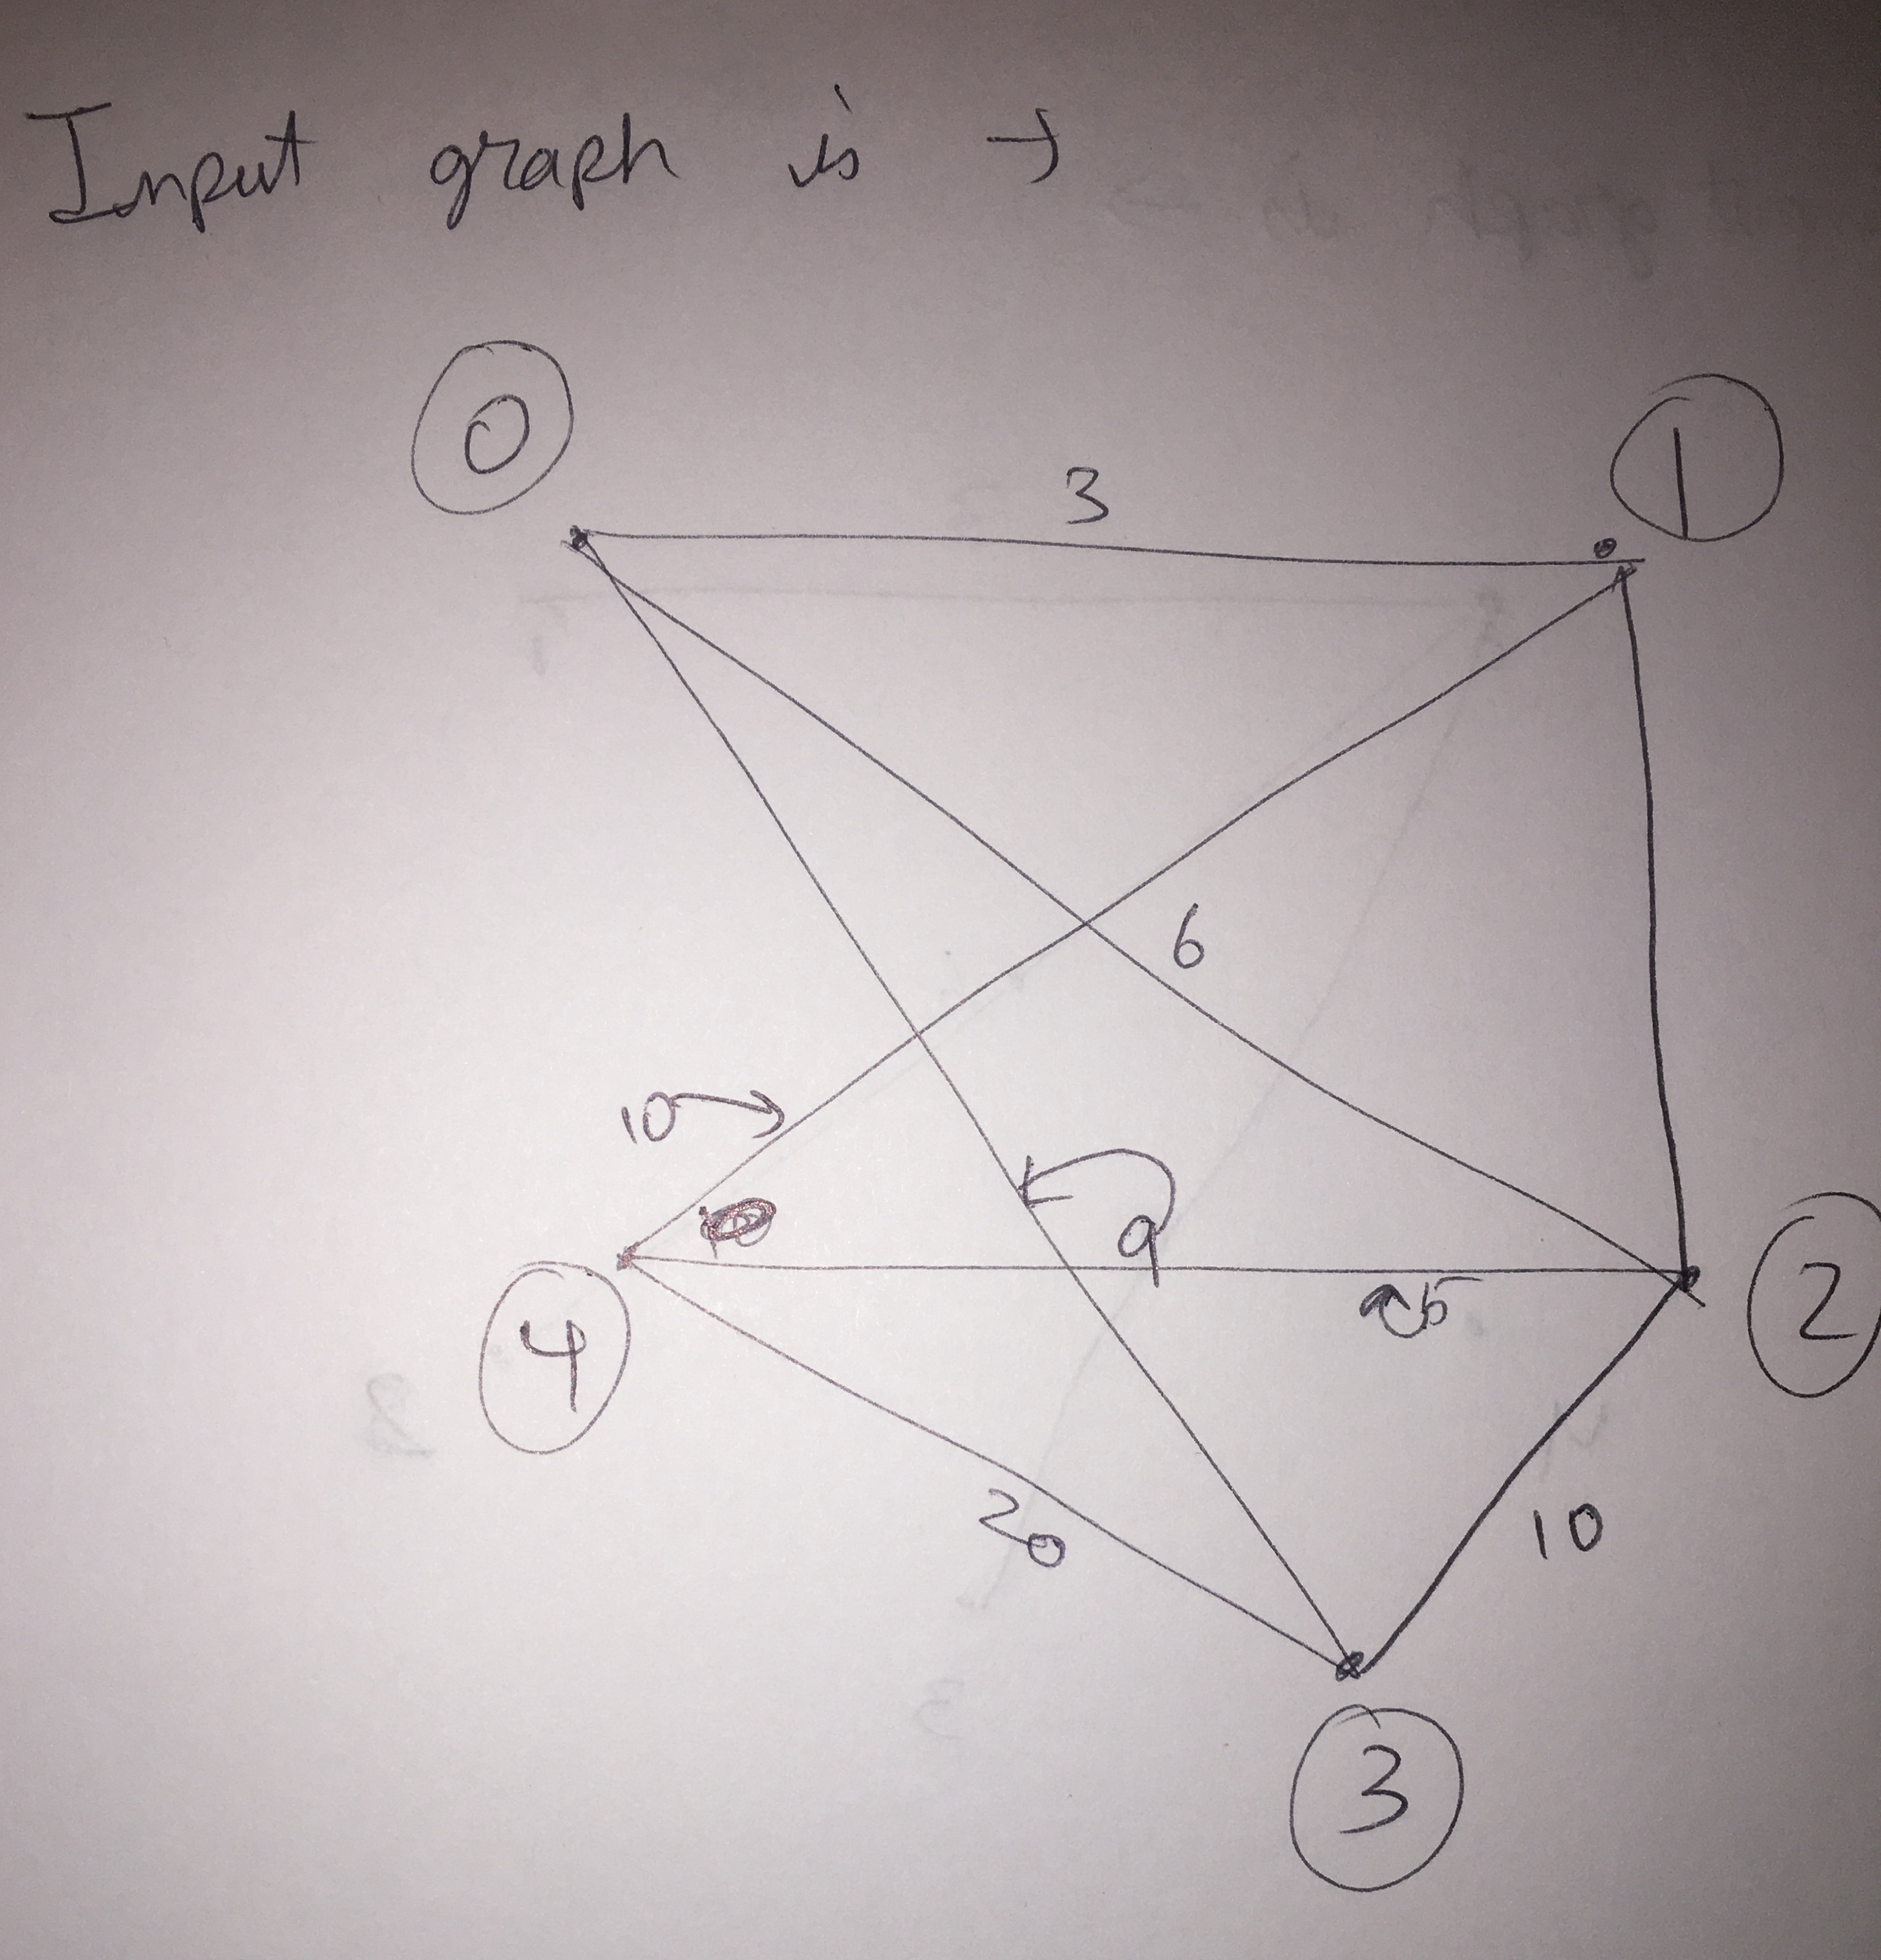 Input graph is →
0
1
3
6
10
9
5
4
2
20
10
3